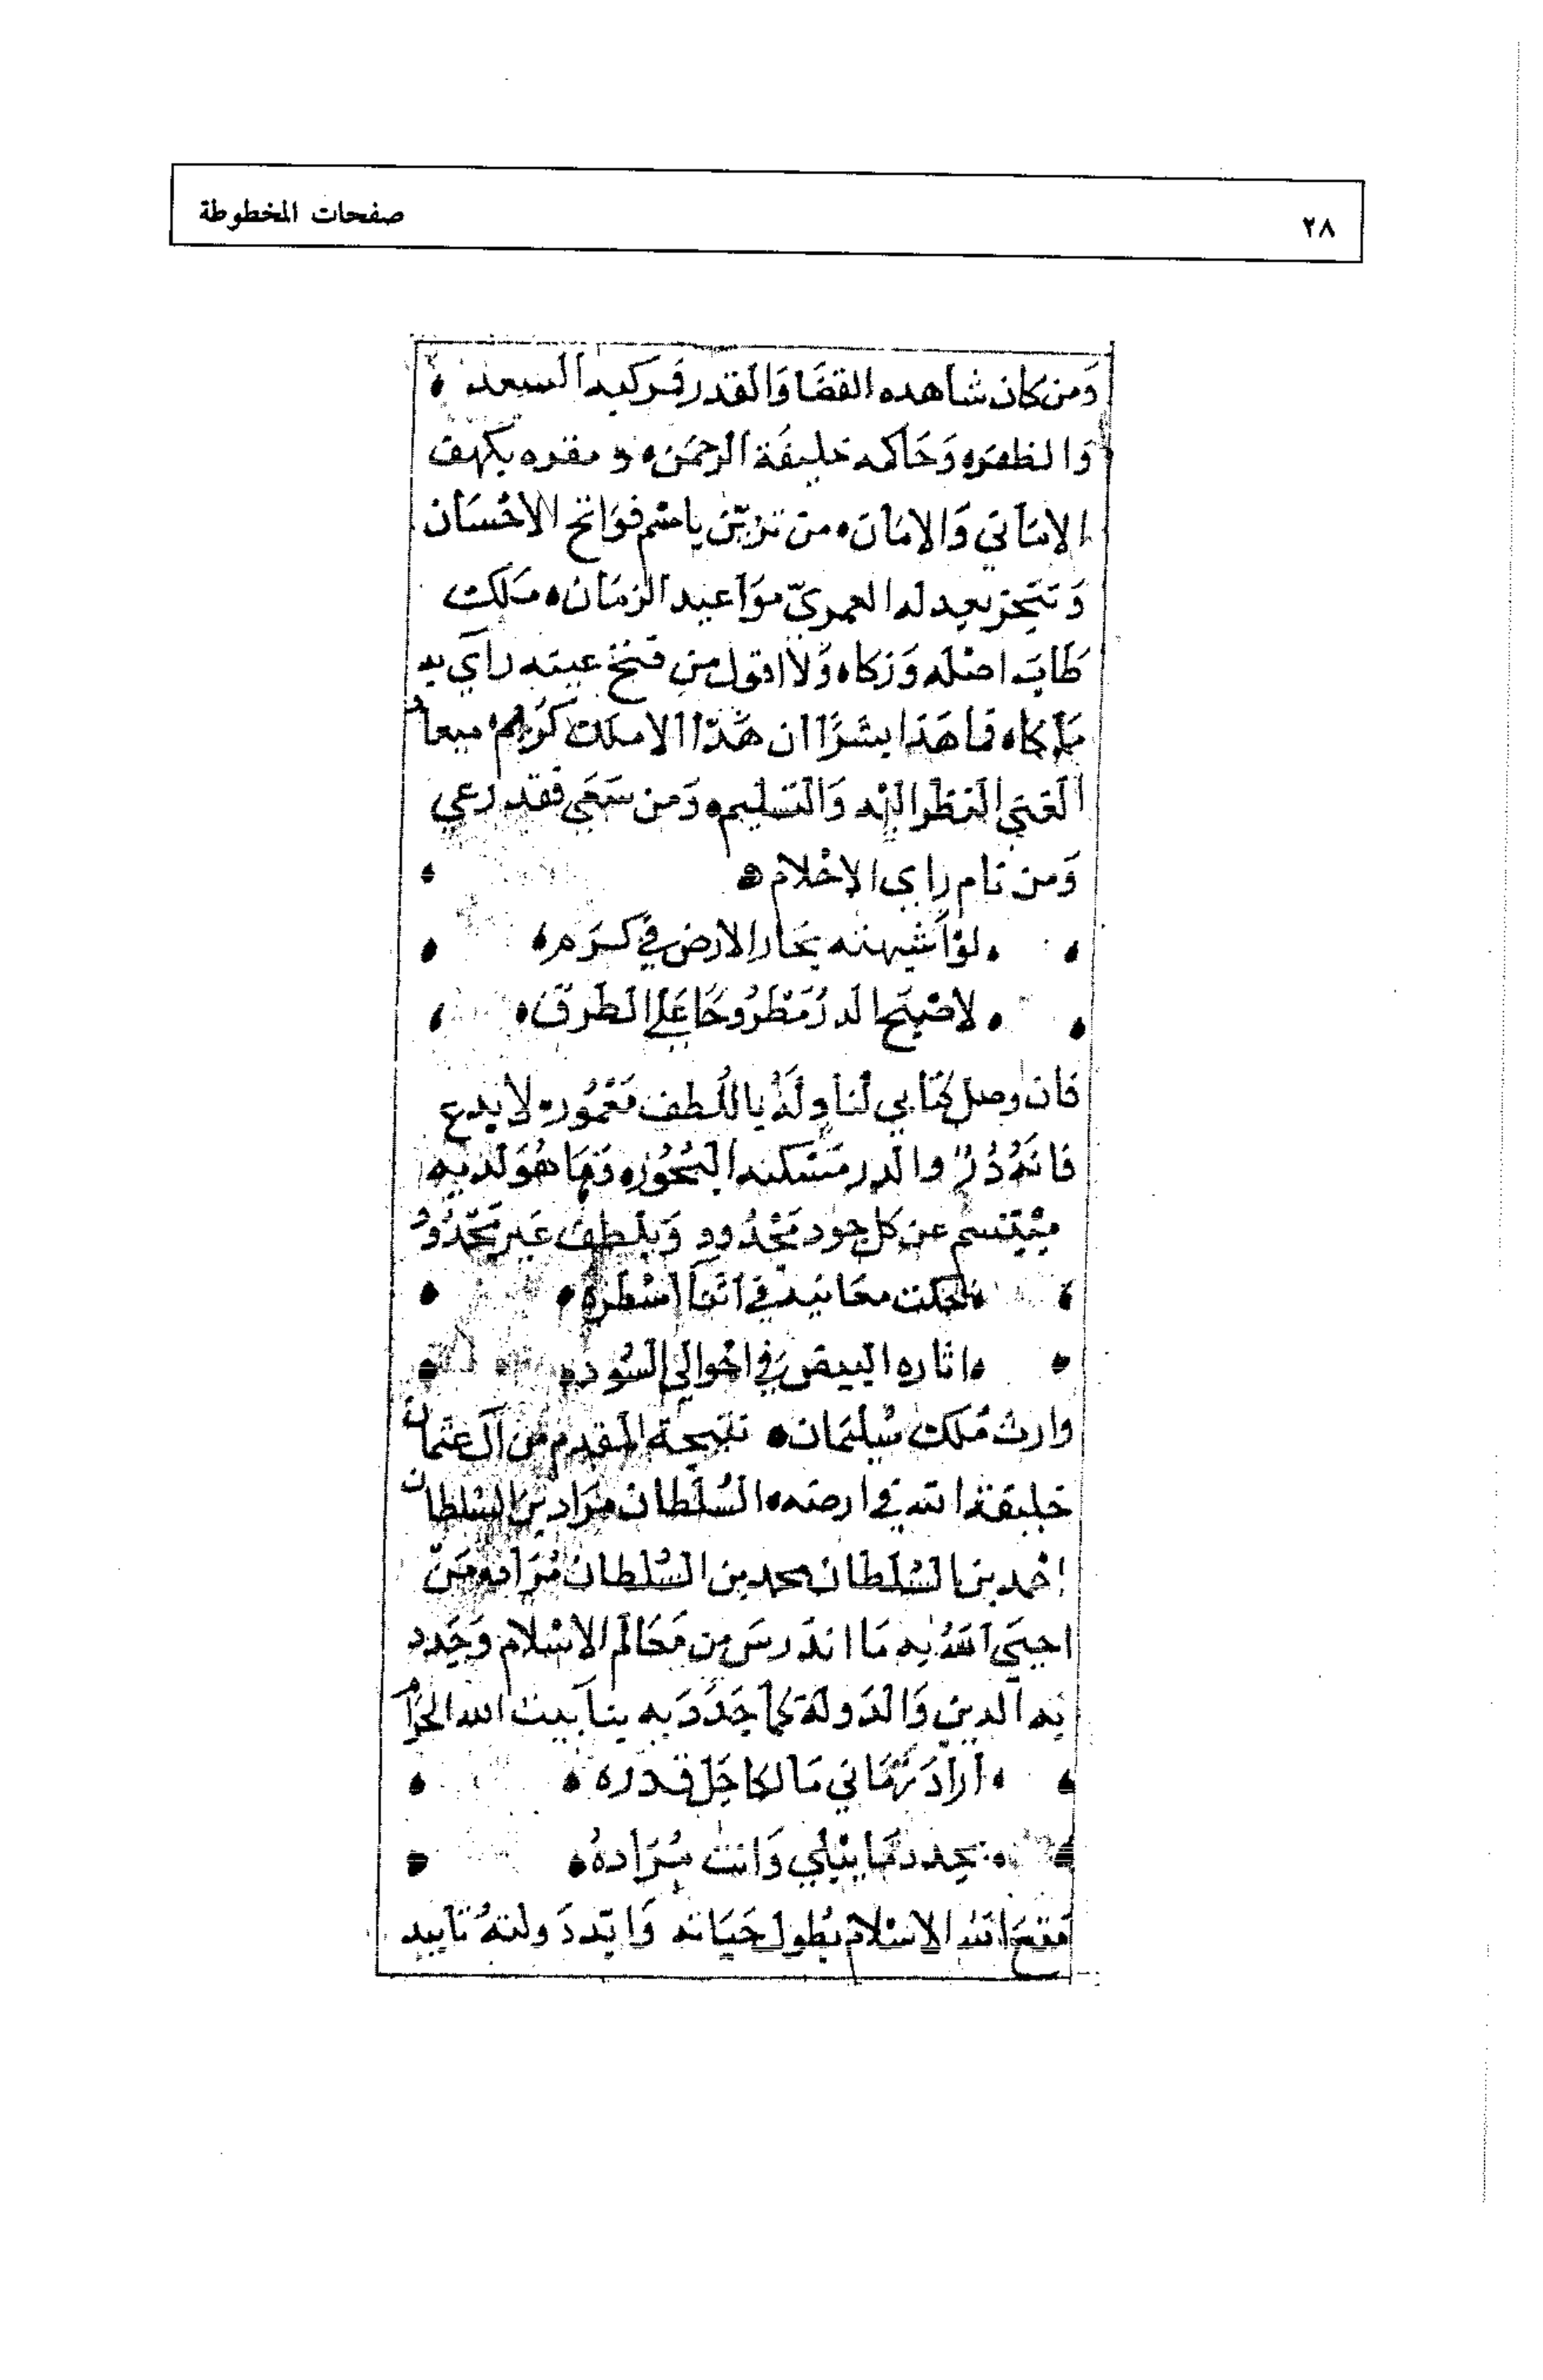 ٢٨
صفحات المخطوطة
وَمن كان شاهده القضَا وَالقدر فمركبه السعد
وَالظفره وَحَاكمه خليفَة الرحمَن ومقره بكهف
الامَاني وَالامَان من تزيّن باسْم فوَاتح الاحْسَان
وَتنجز بعدله العمريّ موَاعيد الزمَان مَلك
طَابَ اصْله وَزكا وَلا اقول من فتح عينه رآي به
مَلكا فما هَذا بشرًا ان هَذا الا ملك كريم
الغني النظر اليْه وَالتسليم وَمن سَعَى فقد رعي
وَمن نام راي الاحْلام
لوْ اَشبهته بحَار الارض في كرَم
لاصْبَح الدرُ مَطرُوحًا عَلى الطرق
فان وصل كتابي لنا ولهُ باللُطف مَعْمُور لا بدع
فانهُ دُرٌ والدر مَسْكنه البُحُور وَهَا هُوَ لديه
مبْتسم عن كل جود مَحْدُود وَبلطف غير مَحْدُودُ
تحكت معَانيه في اثنَا اسْطره
اثاره البيض في احْوالي السُود
وارث مُلك سُليمَان نتيجة المقدم من آل عثمان
خليفة الله في ارضه السُلطان مرَاد بن السلطان
احْمد بن السُلطان محمد بن السُلطان مُرَاد مَن
احيَى اللهُ به مَا اندرسَ من مَعَالم الاسْلام وَجَدد
به الدين وَالدَولة كما جَدَدَ به بنا بيت الله الحرَام
ارادَ زمَاني مَالكا جَل قدره
يجدد مَا يبْلي وَانت مُرَادهُ
مَتعَ الله الاسْلام بطول حَيَاته وَابّد دَولتهُ تابيد